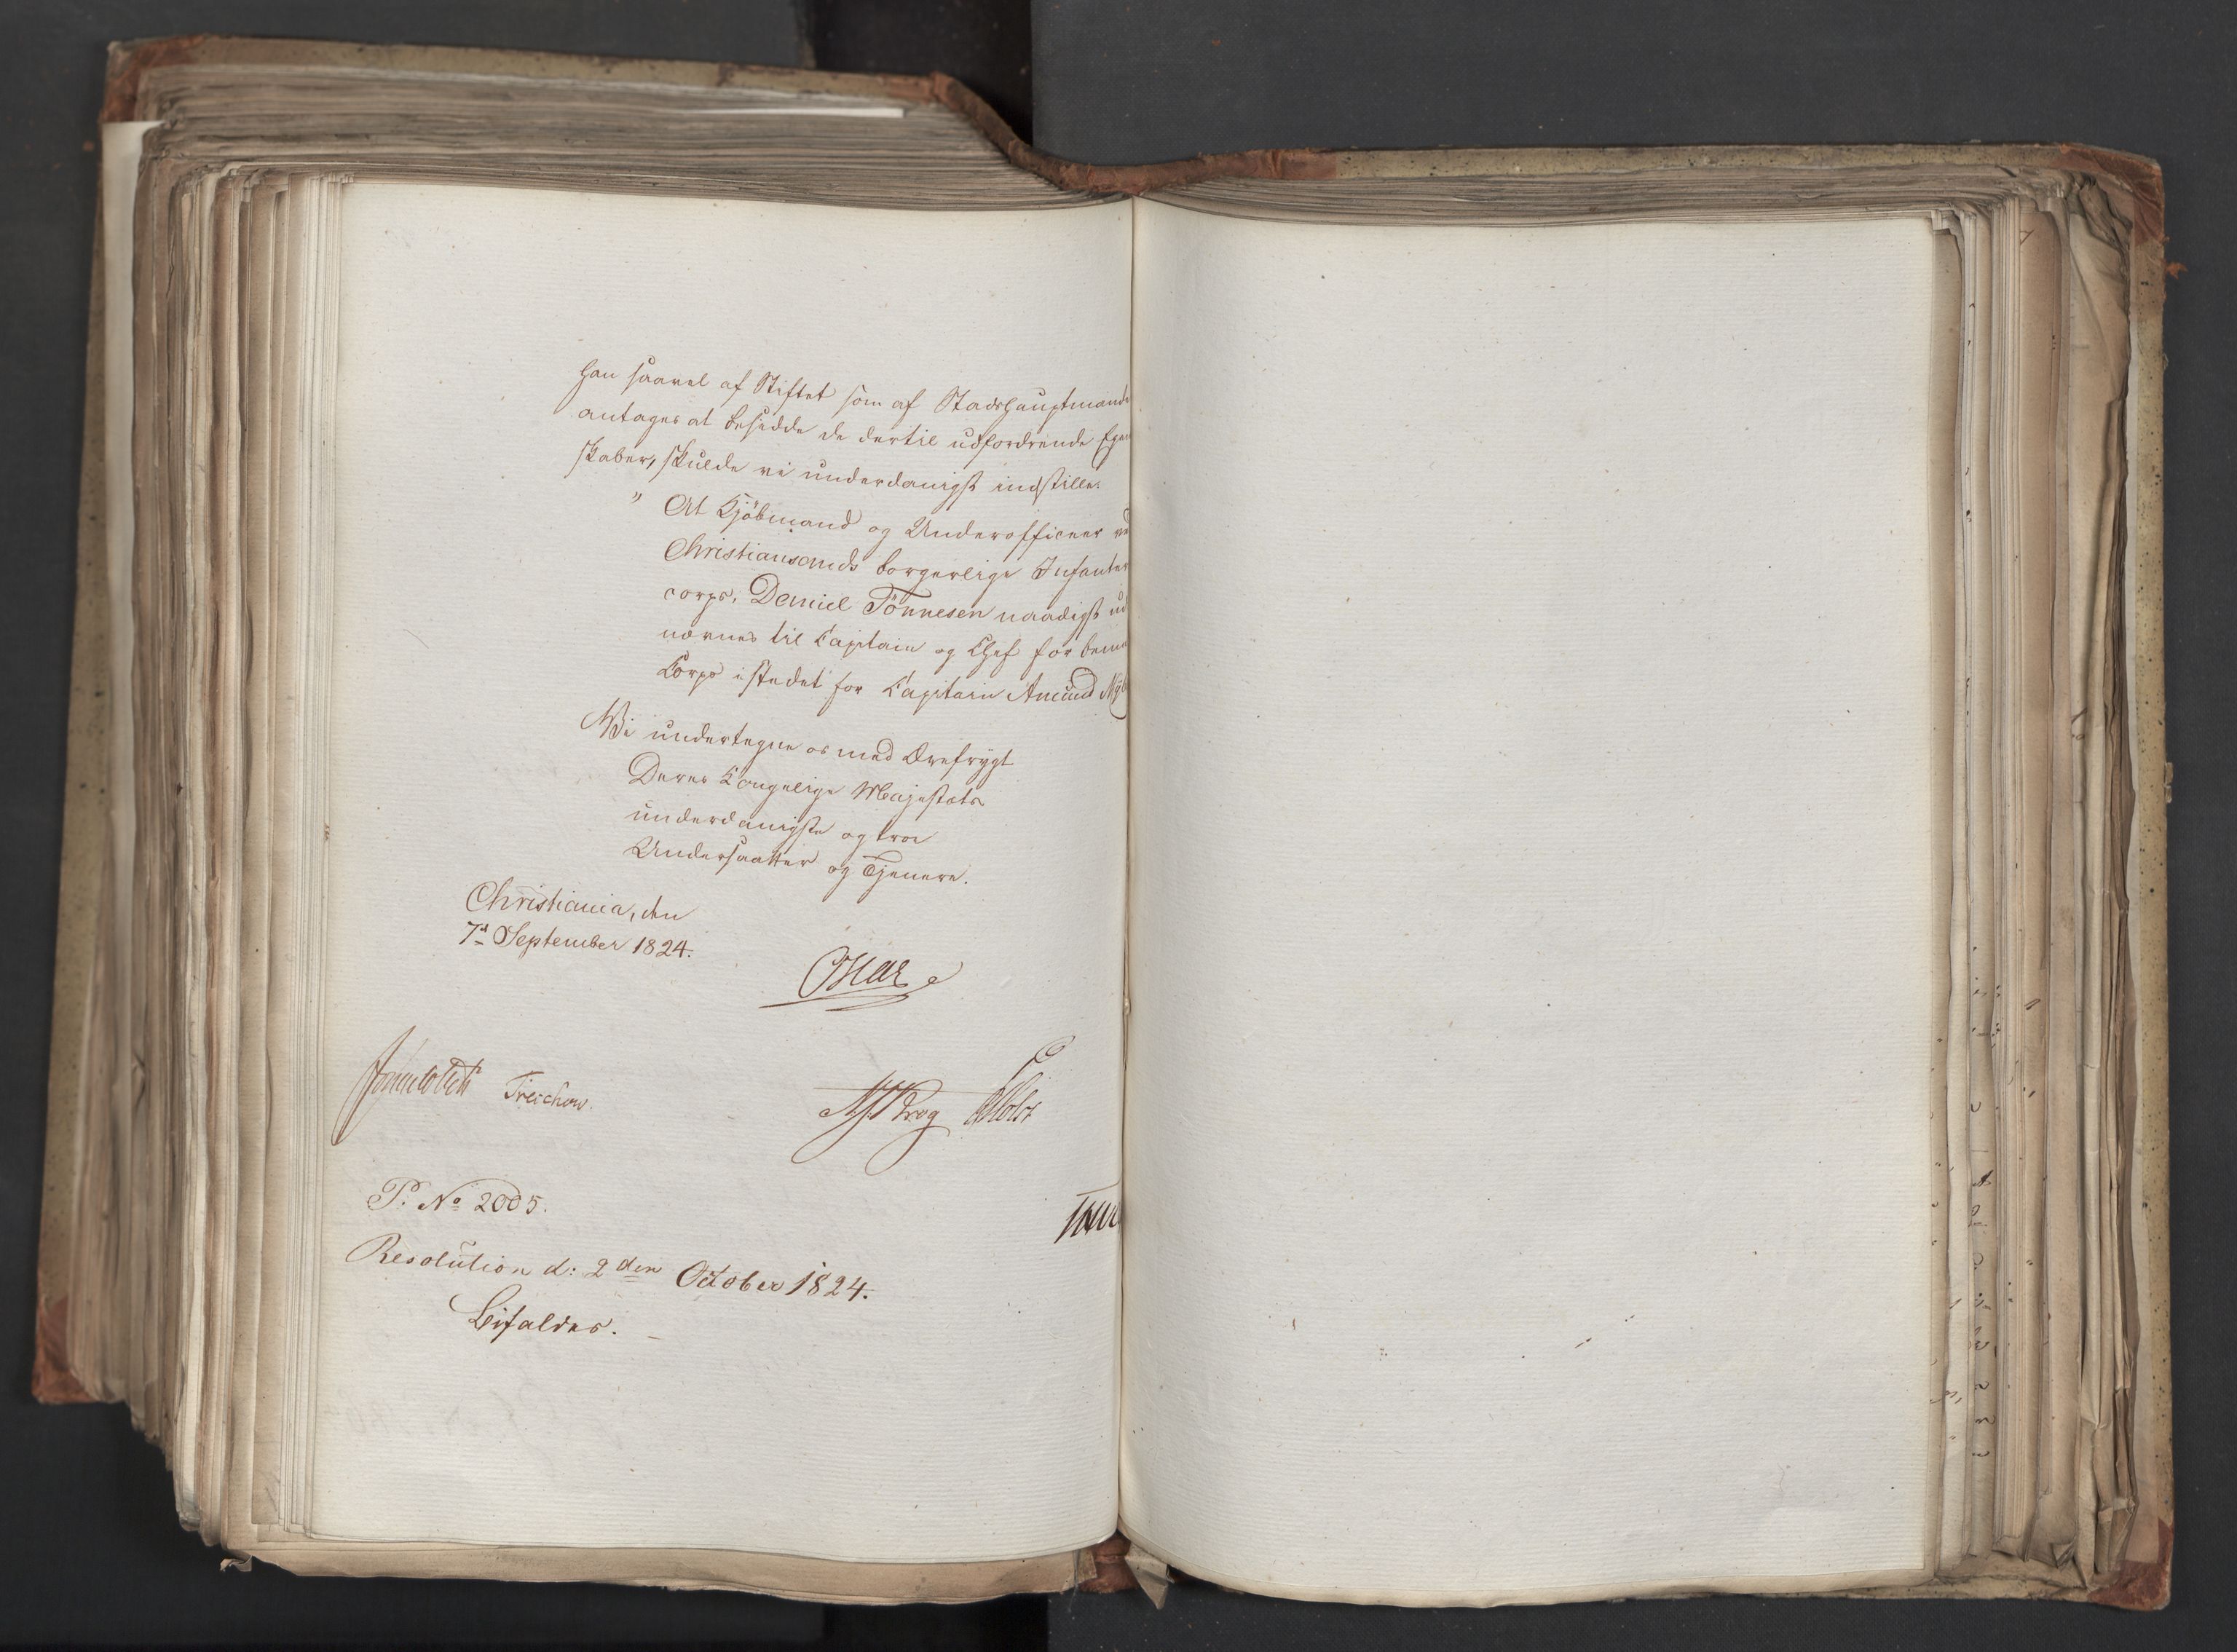 han saavel af Stiftet som af Stadshauptmande
antages at besidde de dertil udfordrende Egen
skaber, skulde vi underdanigst indstille:
" At Kjöbmand og Underofficeer ved
Christiansands borgerlige Infanter
corps, Daniel Tönnesen naadigst ud
nævnes til Capitain og Chef for benæ
Corps istedet for Capitain Amund
Wi undertegne os med Ærefrygt
Deres Kongelige Majestæts
underdanigste og troe
Undersaatter og Tjenere.
Christiania, den
7d September 1824.
Oscar
Sommerhielm Treschow. Krog Holst
P: No 2005.
Resolution d: 2den October 1824.
Bifaldes.